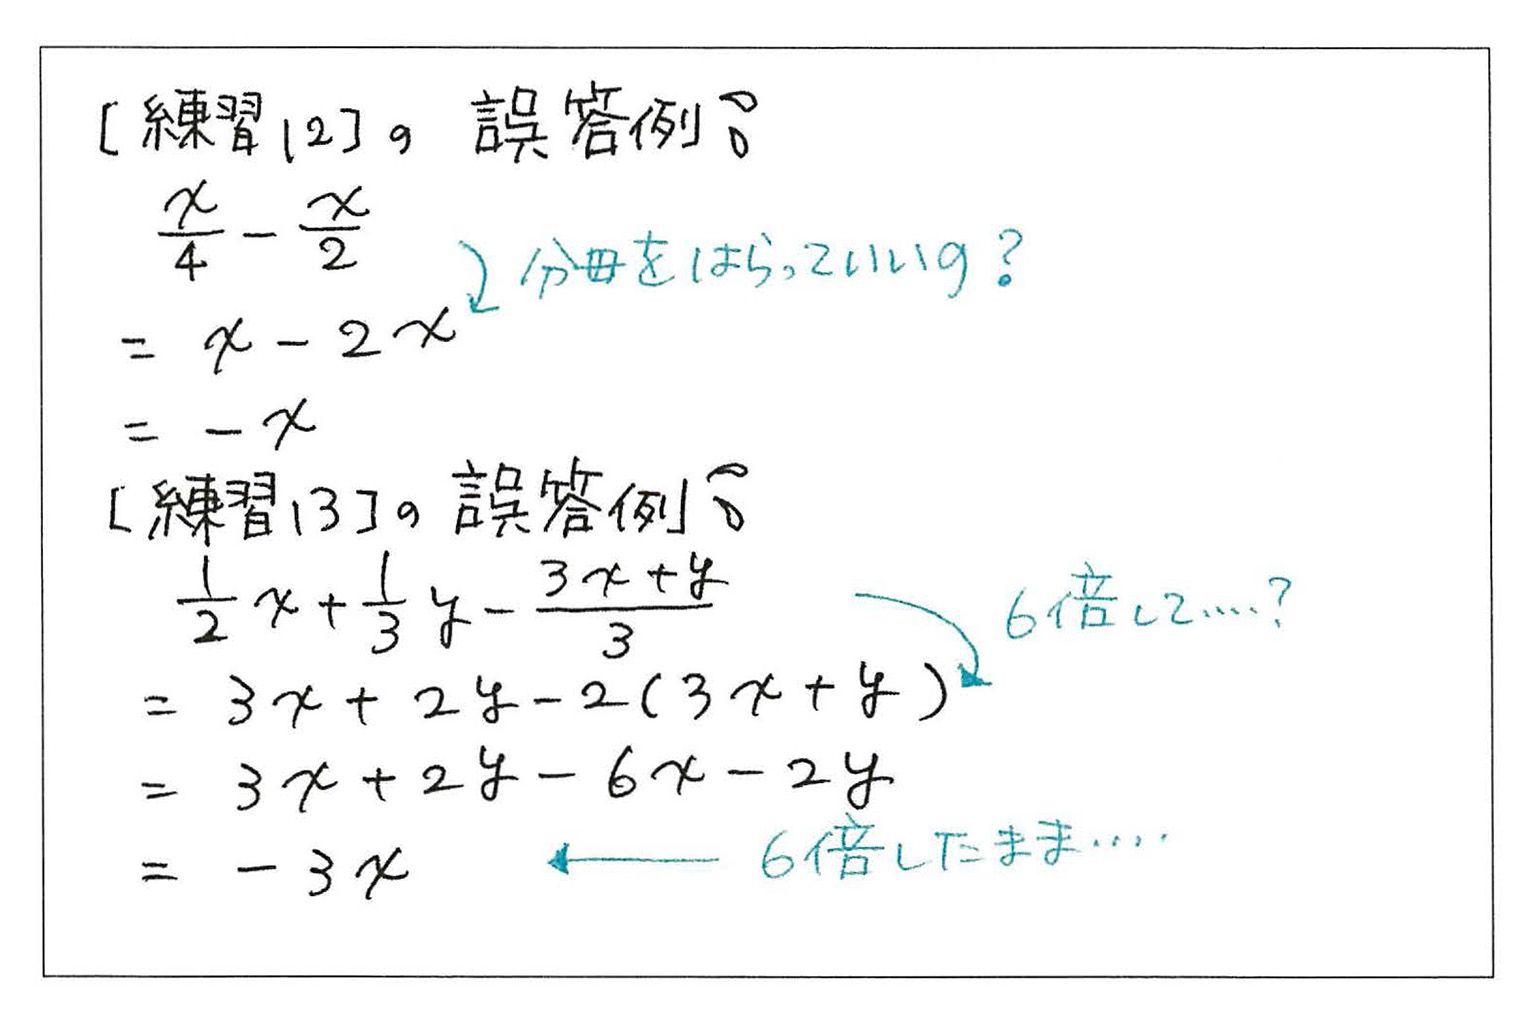 [練習12]の 誤答例
x/4 - x/2
分母をはらっていいの?
= x - 2x
= - x
[練習13]の 誤答例
1/2 x + 1/3 y - (3x+y)/3
6倍して....?
= 3x + 2y - 2(3x+y)
= 3x + 2y - 6x - 2y
= - 3x ← 6倍したまま....